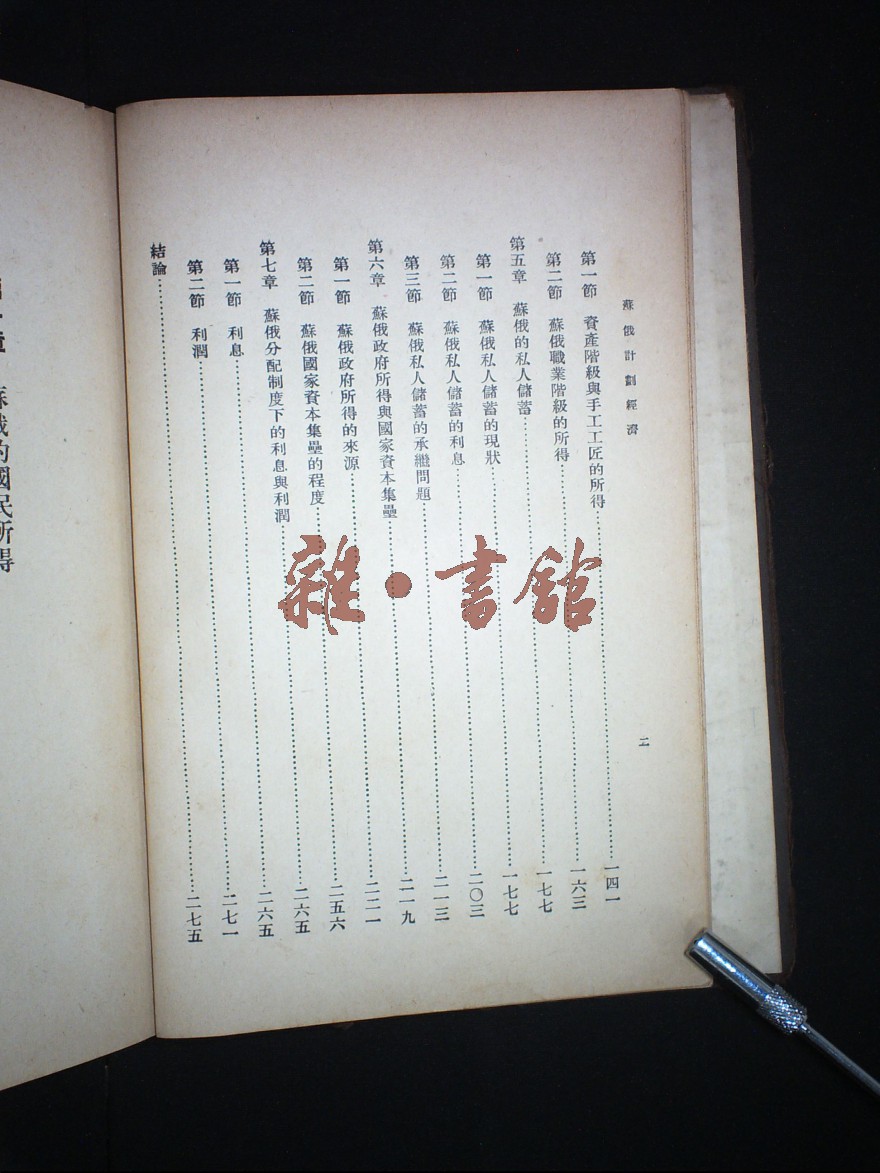 蘇俄計劃經濟 二
第一節 資產階級與手工工匠的所得……一四一
第二節 蘇俄職業階級的所得……一六三
第五章 蘇俄的私人儲蓄……一七七
第一節 蘇俄私人儲蓄的現狀……一七七
第二節 蘇俄私人儲蓄的利息……二〇三
第三節 蘇俄私人儲蓄的承繼問題……二一三
第六章 蘇俄政府所得與國家資本集壘……二一九
第一節 蘇俄政府所得的來源……二二一
第二節 蘇俄國家資本集壘的程度……二五六
第七章 蘇俄分配制度下的利息與利潤……二六五
第一節 利息……二六五
第二節 利潤……二七一
結論……二七五
的國民所得
雜·書館